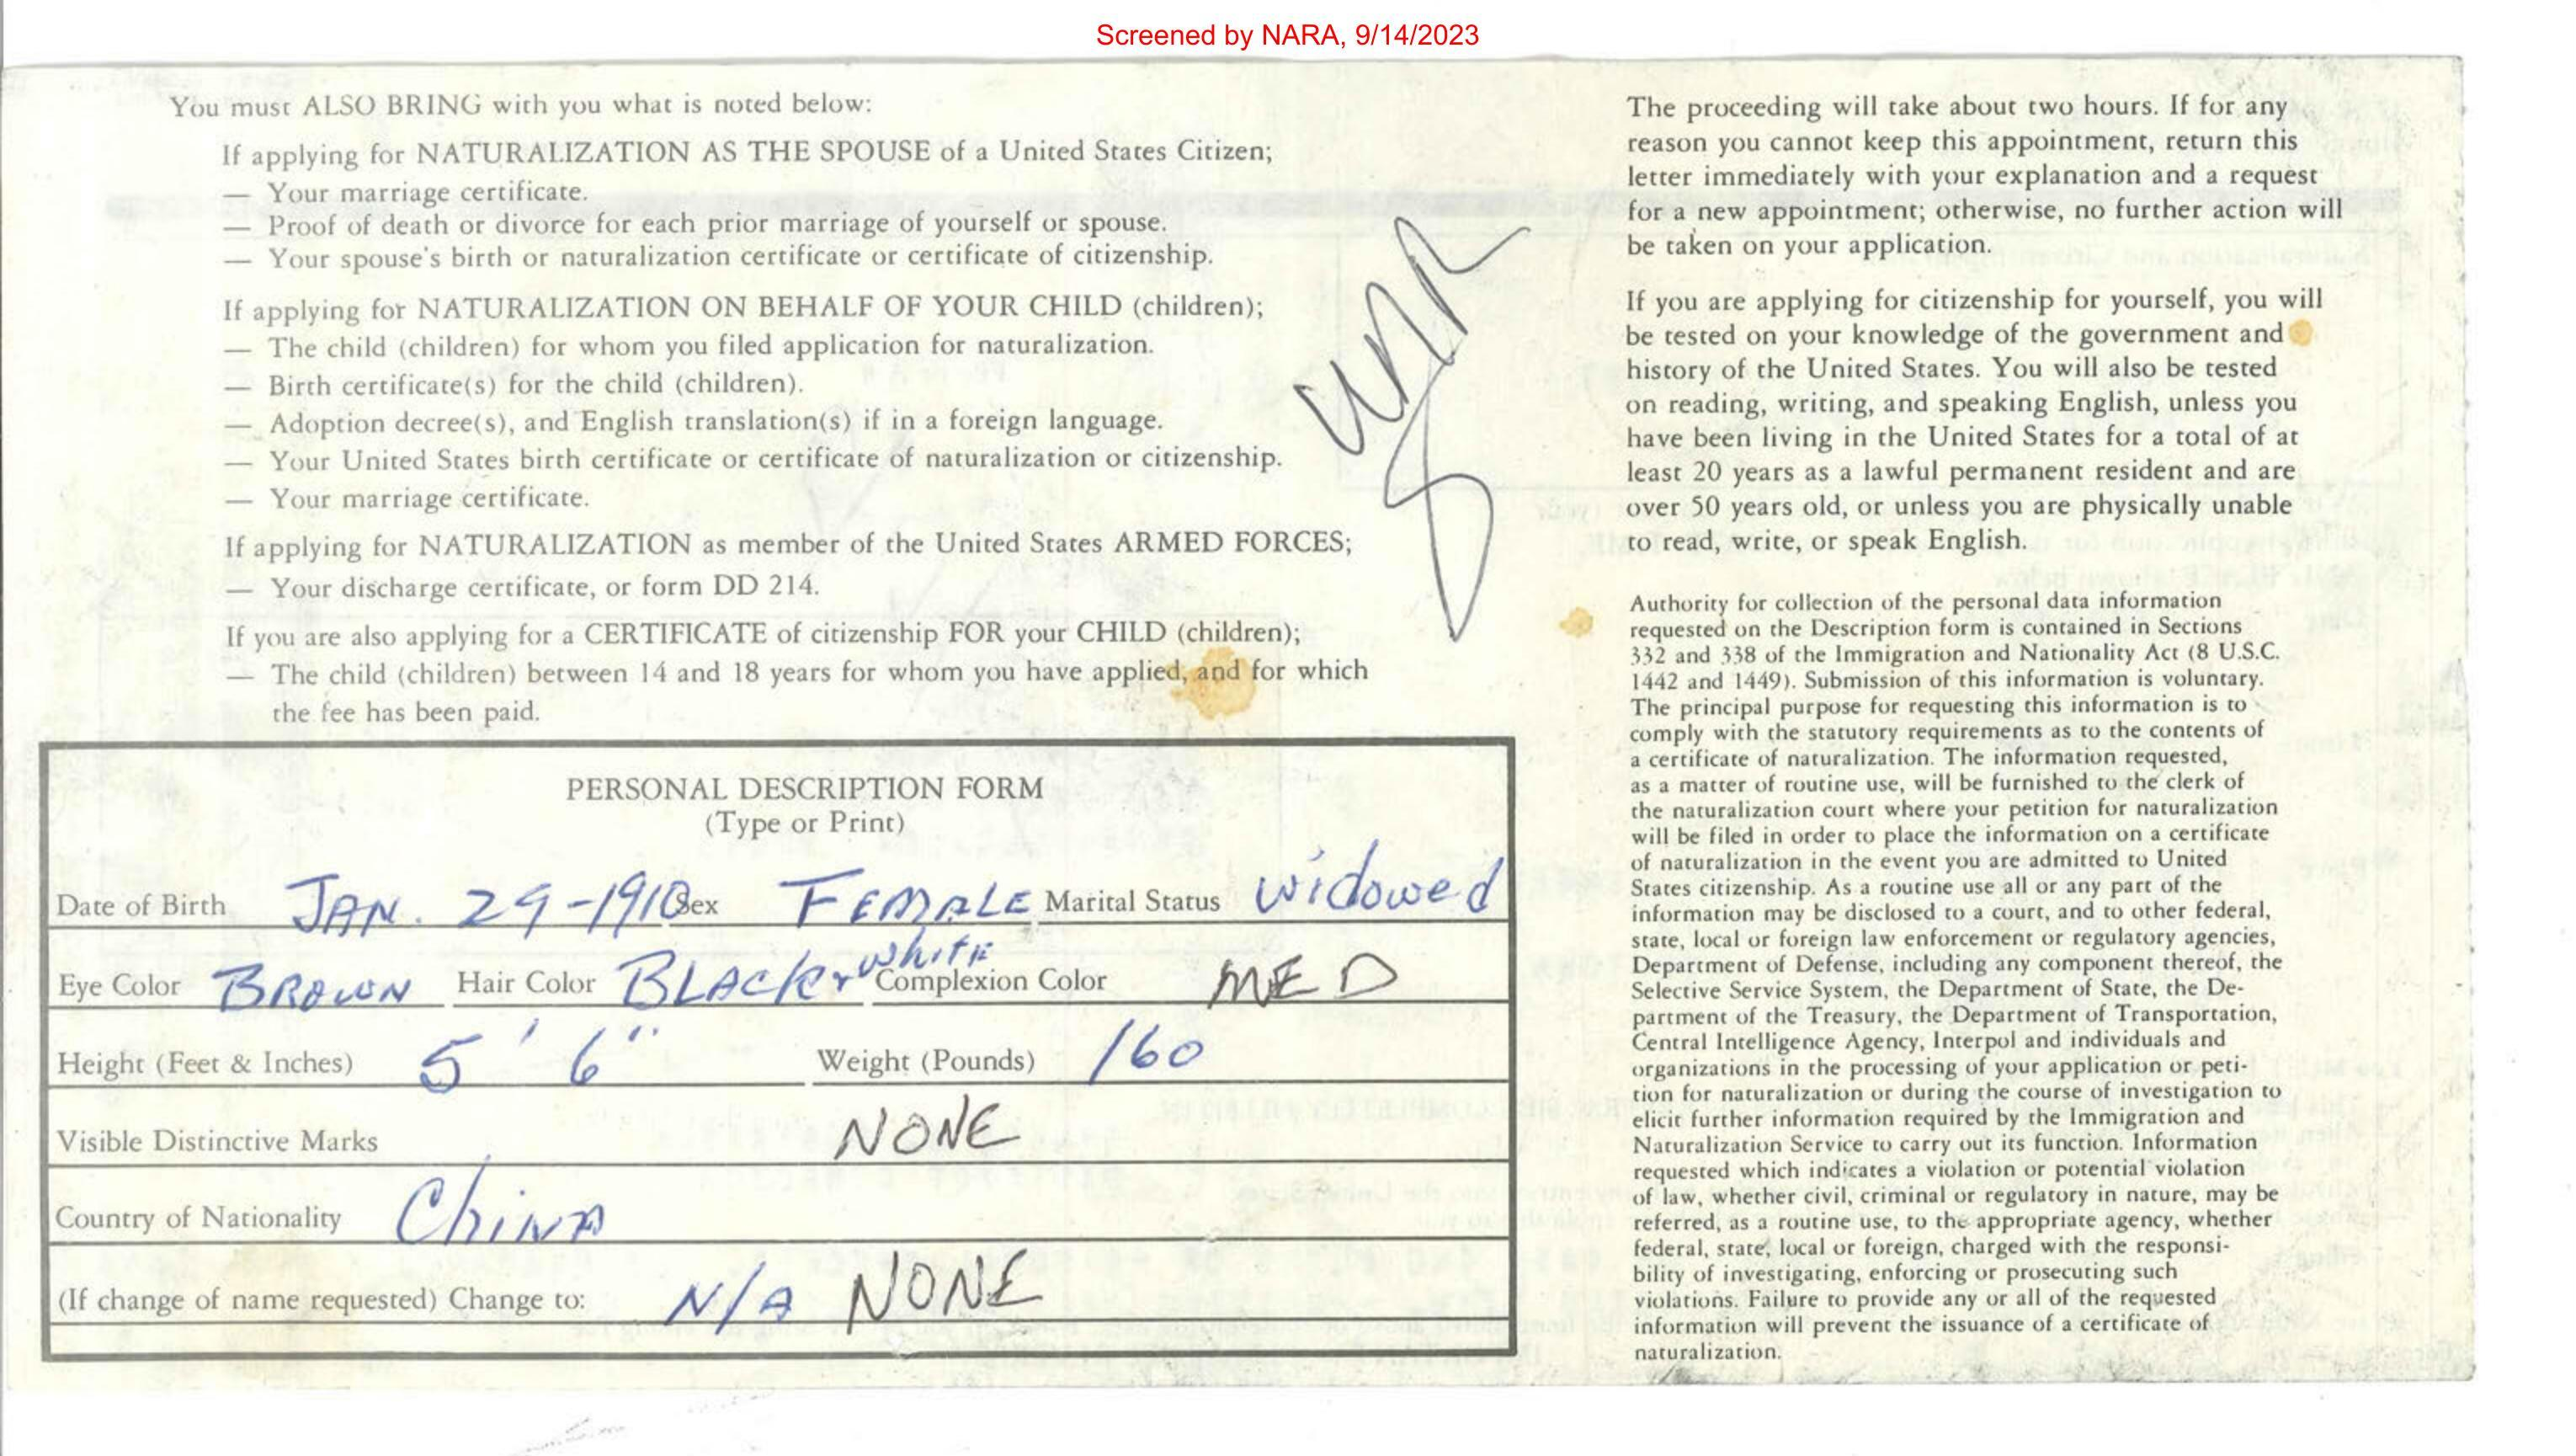 Screened by NARA, 9/14/2023
You must ALSO BRING with you what is noted below:
If applying for NATURALIZATION AS THE SPOUSE of a United States Citizen;
— Your marriage certificate.
— Proof of death or divorce for each prior marriage of yourself or spouse.
— Your spouse's birth or naturalization certificate or certificate of citizenship.
If applying for NATURALIZATION ON BEHALF OF YOUR CHILD (children);
— The child (children) for whom you filed application for naturalization.
— Birth certificate(s) for the child (children).
— Adoption decree(s), and English translation(s) if in a foreign language.
— Your United States birth certificate or certificate of naturalization or citizenship.
— Your marriage certificate.
If applying for NATURALIZATION as member of the United States ARMED FORCES;
— Your discharge certificate, or form DD 214.
If you are also applying for a CERTIFICATE of citizenship FOR your CHILD (children);
— The child (children) between 14 and 18 years for whom you have applied, and for which
the fee has been paid.
PERSONAL DESCRIPTION FORM
(Type or Print)
Date of Birth JAN. 29-1910 Sex FEMALE Marital Status widowed
Eye Color BROWN Hair Color BLACK + white Complexion Color MED
Height (Feet & Inches) 5' 6" Weight (Pounds) 160
Visible Distinctive Marks NONE
Country of Nationality China
(If change of name requested) Change to: N/A NONE
The proceeding will take about two hours. If for any
reason you cannot keep this appointment, return this
letter immediately with your explanation and a request
for a new appointment; otherwise, no further action will
be taken on your application.
If you are applying for citizenship for yourself, you will
be tested on your knowledge of the government and
history of the United States. You will also be tested
on reading, writing, and speaking English, unless you
have been living in the United States for a total of at
least 20 years as a lawful permanent resident and are
over 50 years old, or unless you are physically unable
to read, write, or speak English.
Authority for collection of the personal data information
requested on the Description form is contained in Sections
332 and 338 of the Immigration and Nationality Act (8 U.S.C.
1442 and 1449). Submission of this information is voluntary.
The principal purpose for requesting this information is to
comply with the statutory requirements as to the contents of
a certificate of naturalization. The information requested,
as a matter of routine use, will be furnished to the clerk of
the naturalization court where your petition for naturalization
will be filed in order to place the information on a certificate
of naturalization in the event you are admitted to United
States citizenship. As a routine use all or any part of the
information may be disclosed to a court, and to other federal,
state, local or foreign law enforcement or regulatory agencies,
Department of Defense, including any component thereof, the
Selective Service System, the Department of State, the De-
partment of the Treasury, the Department of Transportation,
Central Intelligence Agency, Interpol and individuals and
organizations in the processing of your application or peti-
tion for naturalization or during the course of investigation to
elicit further information required by the Immigration and
Naturalization Service to carry out its function. Information
requested which indicates a violation or potential violation
of law, whether civil, criminal or regulatory in nature, may be
referred, as a routine use, to the appropriate agency, whether
federal, state, local or foreign, charged with the responsi-
bility of investigating, enforcing or prosecuting such
violations. Failure to provide any or all of the requested
information will prevent the issuance of a certificate of
naturalization.